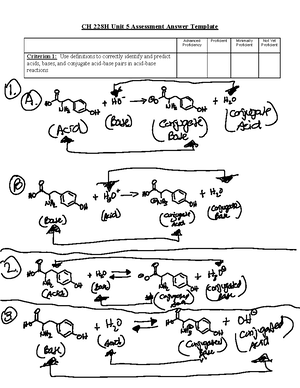 CH 228H Unit 5 Assessment Answer Template
Advanced Proficiency
Proficient
Minimally Proficient
Not Yet Proficient
Criterion 1: Use definitions to correctly identify and predict
acids, bases, and conjugate acid-base pairs in acid-base
reactions
1.
A.
HO NH₂ OH + HO⊖ → O NH₂ OH + H₂O
(Acid) (Base) (Conjugate Base) (Conjugate Acid)
B.
HO NH₂ OH + H₃O⁺ → HO OH + H₂O
(Base) (Acid) (Conjugate Acid) (Conjugate Base)
2.
HO NH₂ OH + H₂O ⇌ O NH₂ OH + H₃O
(Acid) (Base) (Conjugated (Conjugated
Base)
3.
HO NH₂ OH + H₂O ⇌ HO OH + OH⊖
(Base) (Acid) (Conjugated (Conjugated
Acid)